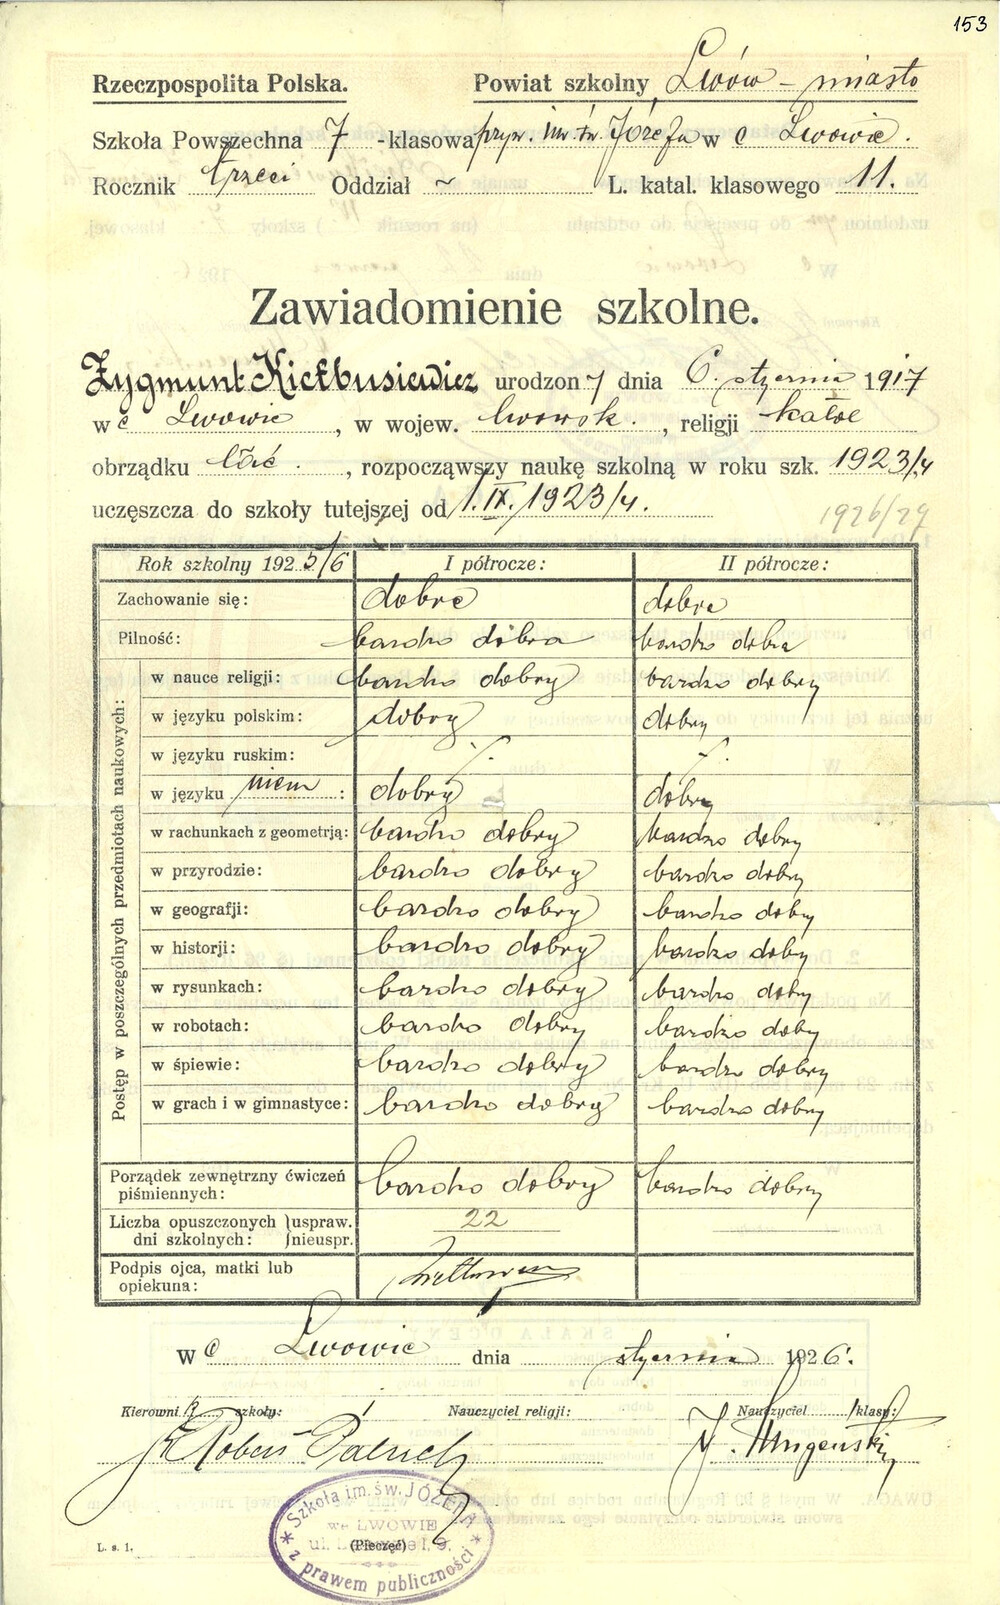 153
Rzeczpospolita Polska. Powiat szkolny Lwów - miasto
Szkoła Powszechna 7 -klasowa pryw. im. św. Józefa w e Lwowie.
Rocznik trzeci Oddział ~ L. katal. klasowego 11.
Zawiadomienie szkolne.
Zygmunt Kiełbusiewicz urodzony dnia 6. stycznia 1917
we Lwowie, w wojew. lwowsk., religji
obrządku łać., rozpocząwszy naukę szkolną w roku szk. 1923/4
uczęszcza do szkoły tutejszej od 1. IX. 1923/4.
1926/27
Rok szkolny 1925/6 I półrocze: II półrocze:
Zachowanie się: dobre dobre
Pilność: bardzo dobra bardzo dobra
Postęp w poszczególnych przedmiotach naukowych:
w nauce religji: bardzo dobry bardzo dobry
w języku polskim: dobry dobry
w języku ruskim: /. /.
w języku niem: dobry dobry
w rachunkach z geometrją: bardzo dobry bardzo dobry
w przyrodzie: bardzo dobry bardzo dobry
w geografji: bardzo dobry bardzo dobry
w historji: bardzo dobry bardzo dobry
w rysunkach: bardzo dobry bardzo dobry
w robotach: bardzo dobry bardzo dobry
w śpiewie: bardzo dobry bardzo dobry
w grach i w gimnastyce: bardzo dobry bardzo dobry
Porządek zewnętrzny ćwiczeń piśmiennych: bardzo dobry bardzo dobry
Liczba opuszczonych dni szkolnych: uspraw. 22
nieuspr.
Podpis ojca, matki lub opiekuna:
We Lwowie dnia stycznia 1926.
Kierownik szkoły: Nauczyciel religji: Nauczyciel klasy:
Szkoła im. św. JÓZEFA
we LWOWIE
z prawem publiczności
(Pieczęć)
L. s. 1.